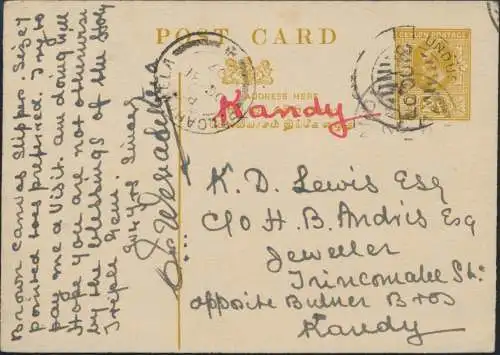 POST CARD
CEYLON POSTAGE
ADDRESS HERE
Kandy
K. D. Lewis Esq
C/O H. B. Andris Esq
Jeweller
Trincomalee St:
opposite Butner Bros
Kandy
Brown canvas slipper Size 7
pointed toes preferred. Try to
pay me a visit. am doing well
Hope you are not otherwise
by the blessings of the Holy
Triple Gem.